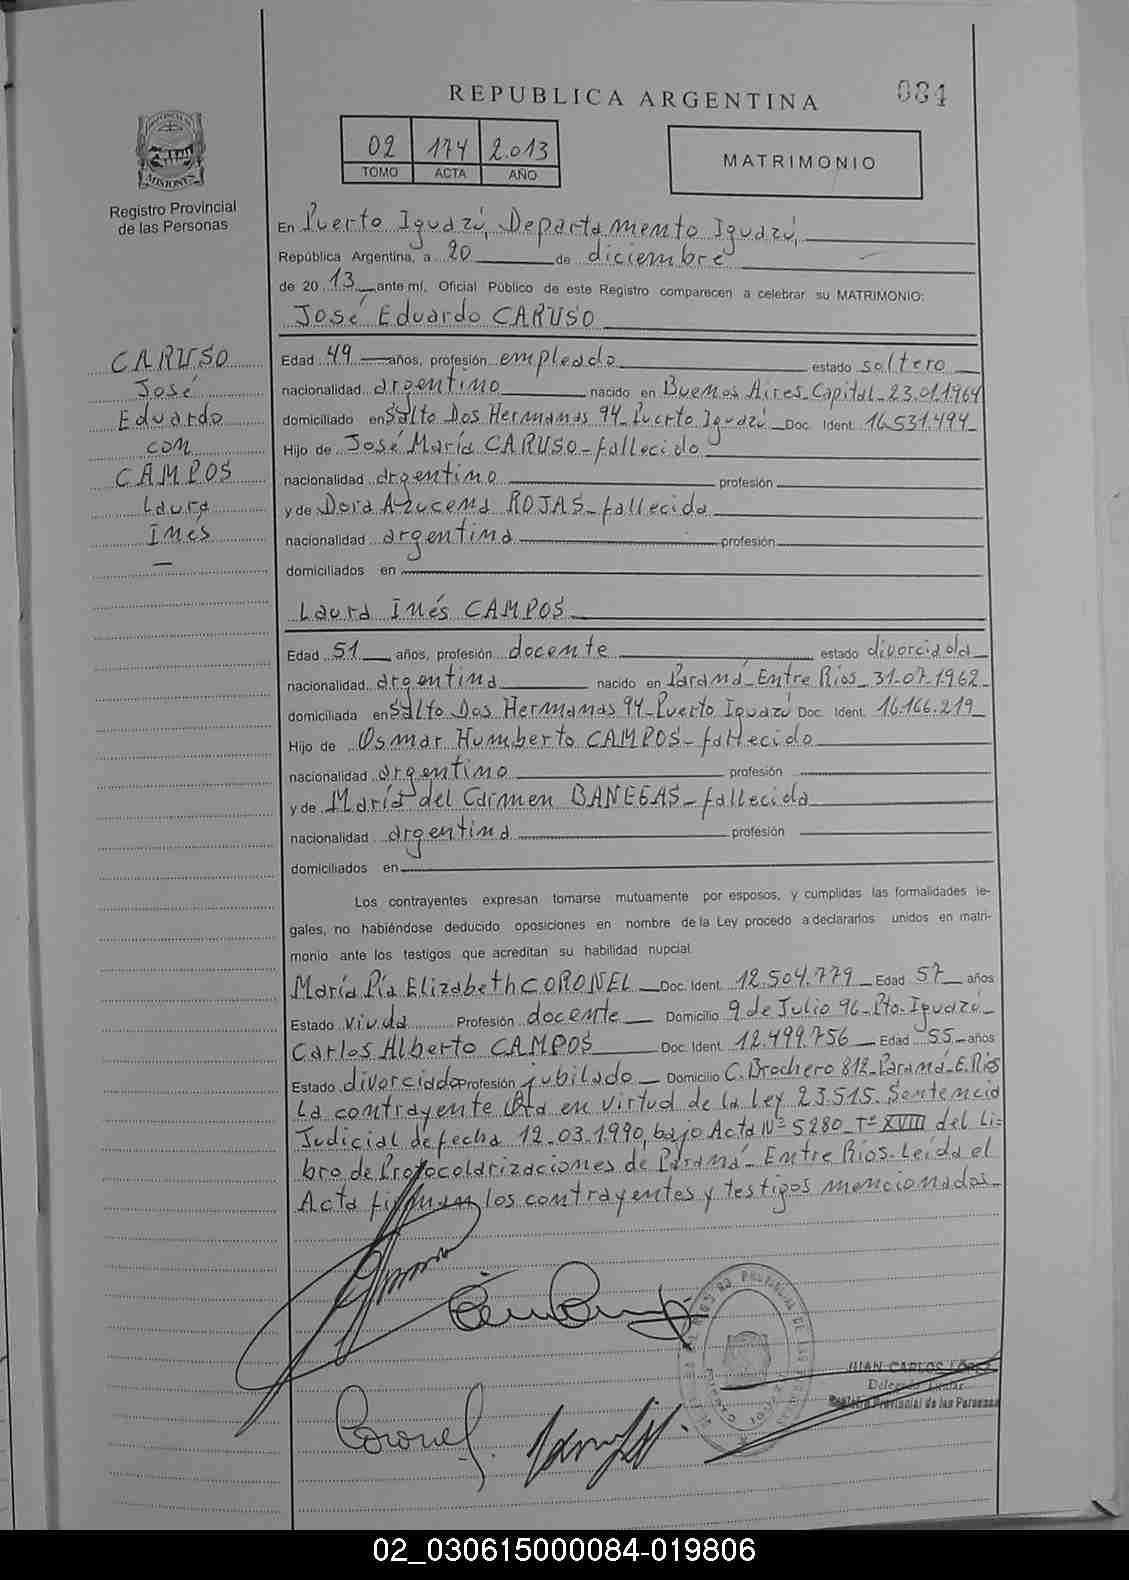 REPUBLICA ARGENTINA
084
02 174 2.013
TOMO ACTA AÑO
MATRIMONIO
MISIONES
Registro Provincial
de las Personas
En Puerto Iguazú, Departamento Iguazú,
República Argentina, a 20 de diciembre
de 20 13 ante mí, Oficial Público de este Registro comparecen a celebrar su MATRIMONIO:
José Eduardo CARUSO
CARUSO
José
Eduardo
con
CAMPOS
Laura
Inés
Edad 49 años, profesión empleado estado soltero
nacionalidad argentino nacido en Buenos Aires-Capital-23.01.1964
domiciliado en Salto Dos Hermanas 94-Puerto Iguazú Doc. Ident. 16.531.494
Hijo de José María CARUSO-fallecido
nacionalidad argentino profesión
y de Dora Azucena ROJAS-fallecida
nacionalidad argentina profesión
domiciliados en
Laura Inés CAMPOS
Edad 51 años, profesión docente estado divorciada
nacionalidad argentina nacido en Paraná-Entre Ríos-31.07.1962
domiciliada en Salto Dos Hermanas 94-Puerto Iguazú Doc. Ident. 16.166.219
Hijo de Osmar Humberto CAMPOS-fallecido
nacionalidad argentino profesión
y de María del Carmen BANEGAS-fallecida
nacionalidad argentina profesión
domiciliados en
Los contrayentes expresan tomarse mutuamente por esposos, y cumplidas las formalidades le-
gales, no habiéndose deducido oposiciones en nombre de la Ley procedo a declararlos unidos en matri-
monio ante los testigos que acreditan su habilidad nupcial.
María Pía Elizabeth CORONEL Doc. Ident. 12.504.779 Edad 57 años
Estado viuda Profesión docente Domicilio 9 de Julio 96-Pto. Iguazú
Carlos Alberto CAMPOS Doc. Ident. 12.499.756 Edad 55 años
Estado divorciado Profesión jubilado Domicilio C. Brochero 812-Paraná-E. Ríos
La contrayente en virtud de la ley 23.515. Sentencia
Judicial de fecha 12.03.1990, bajo Acta Nº 5280-Tº XVIII del Li-
bro de Protocolarizaciones de Paraná-Entre Ríos. Leída el
Acta firman los contrayentes y testigos mencionados-
Coronel
JUAN CARLOS LÓPEZ
Delegado Titular
Registro Provincial de las Personas
02_030615000084-019806